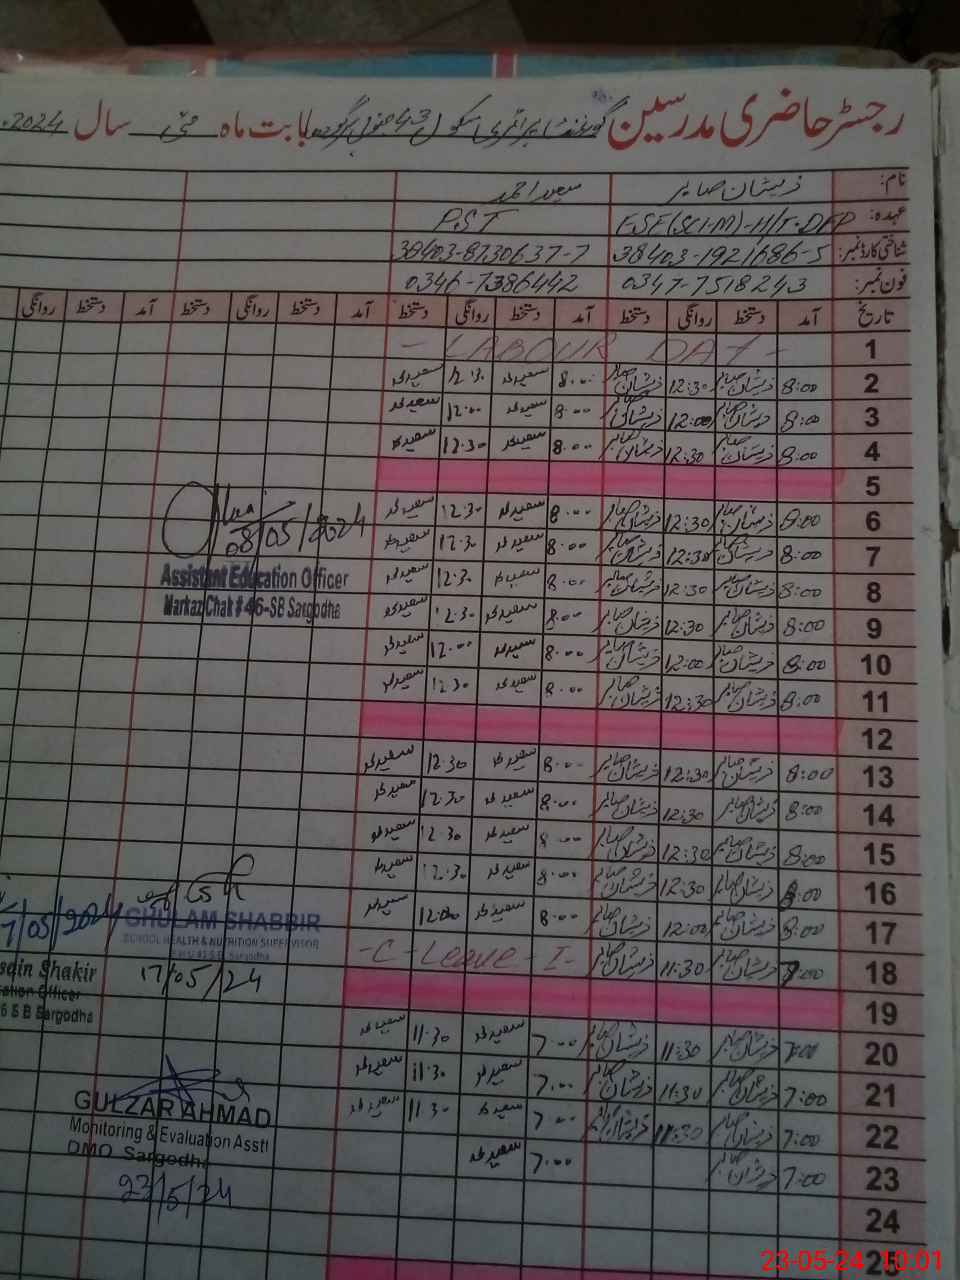 رجسٹر حاضری مدرسین گورنمنٹ پرائمری سکول 43 بابت ماہ مئی سال 2024.
نام: ذیشان صابر سعید احمد
عہدہ: ESE(SCI-M)-H/T-DFP P.S.T
شناختی کارڈ نمبر: 38403-1921686-5 38403-8730637-7
فون نمبر: 0347-7518243 0346-7386442
تاریخ آمد دستخط روانگی دستخط آمد دستخط روانگی دستخط آمد دستخط روانگی دستخط آمد دستخط روانگی
1 - LABOUR DAY -
2 8:00 ذیشان صابر 12:30 ذیشان صابر 8:00 سعید احمد 12:30 سعید احمد
3 8:00 ذیشان صابر 12:00 ذیشان صابر 8:00 سعید احمد 12:00 سعید احمد
4 8:00 ذیشان صابر 12:30 ذیشان صابر 8:00 سعید احمد 12:30 سعید احمد
5
6 8:00 ذیشان صابر 12:30 ذیشان صابر 8:00 سعید احمد 12:30 سعید احمد
7 8:00 ذیشان صابر 12:30 ذیشان صابر 8:00 سعید احمد 12:30 سعید احمد
08/05/2024
8 8:00 ذیشان صابر 12:30 ذیشان صابر 8:00 سعید احمد 12:30 سعید احمد
Assistant Education Officer
Markaz Chak # 46-SB Sargodha
9 8:00 ذیشان صابر 12:30 ذیشان صابر 8:00 سعید احمد 12:30 سعید احمد
10 8:00 ذیشان صابر 12:00 ذیشان صابر 8:00 سعید احمد 12:00 سعید احمد
11 8:00 ذیشان صابر 12:30 ذیشان صابر 8:00 سعید احمد 12:30 سعید احمد
12
13 8:00 ذیشان صابر 12:30 ذیشان صابر 8:00 سعید احمد 12:30 سعید احمد
14 8:00 ذیشان صابر 12:30 ذیشان صابر 8:00 سعید احمد 12:30 سعید احمد
15 8:00 ذیشان صابر 12:30 ذیشان صابر 8:00 سعید احمد 12:30 سعید احمد
16 8:00 ذیشان صابر 12:30 ذیشان صابر 8:00 سعید احمد 12:30 سعید احمد
17 8:00 ذیشان صابر 12:00 ذیشان صابر 8:00 سعید احمد 12:00 سعید احمد
7/05/2024
GHULAM SHABBIR
SCHOOL HEALTH & NUTRITION SUPERVISOR
Sargodha
17/05/24
18 7:00 ذیشان صابر 11:30 ذیشان صابر -C-Leave-I-
sain Shakir
ation Officer
6 S B Sargodha
19
20 7:00 ذیشان صابر 11:30 ذیشان صابر 7:00 سعید احمد 11:30 سعید احمد
21 7:00 ذیشان صابر 11:30 ذیشان صابر 7:00 سعید احمد 11:30 سعید احمد
22 7:00 ذیشان صابر 11:30 ذیشان صابر 7:00 سعید احمد 11:30 سعید احمد
GULZAR AHMAD
Monitoring & Evaluation Asstt
DMO Sargodha
23/5/24
23 7:00 ذیشان صابر 7:00 سعید احمد
24
25
23-05-24 10:01